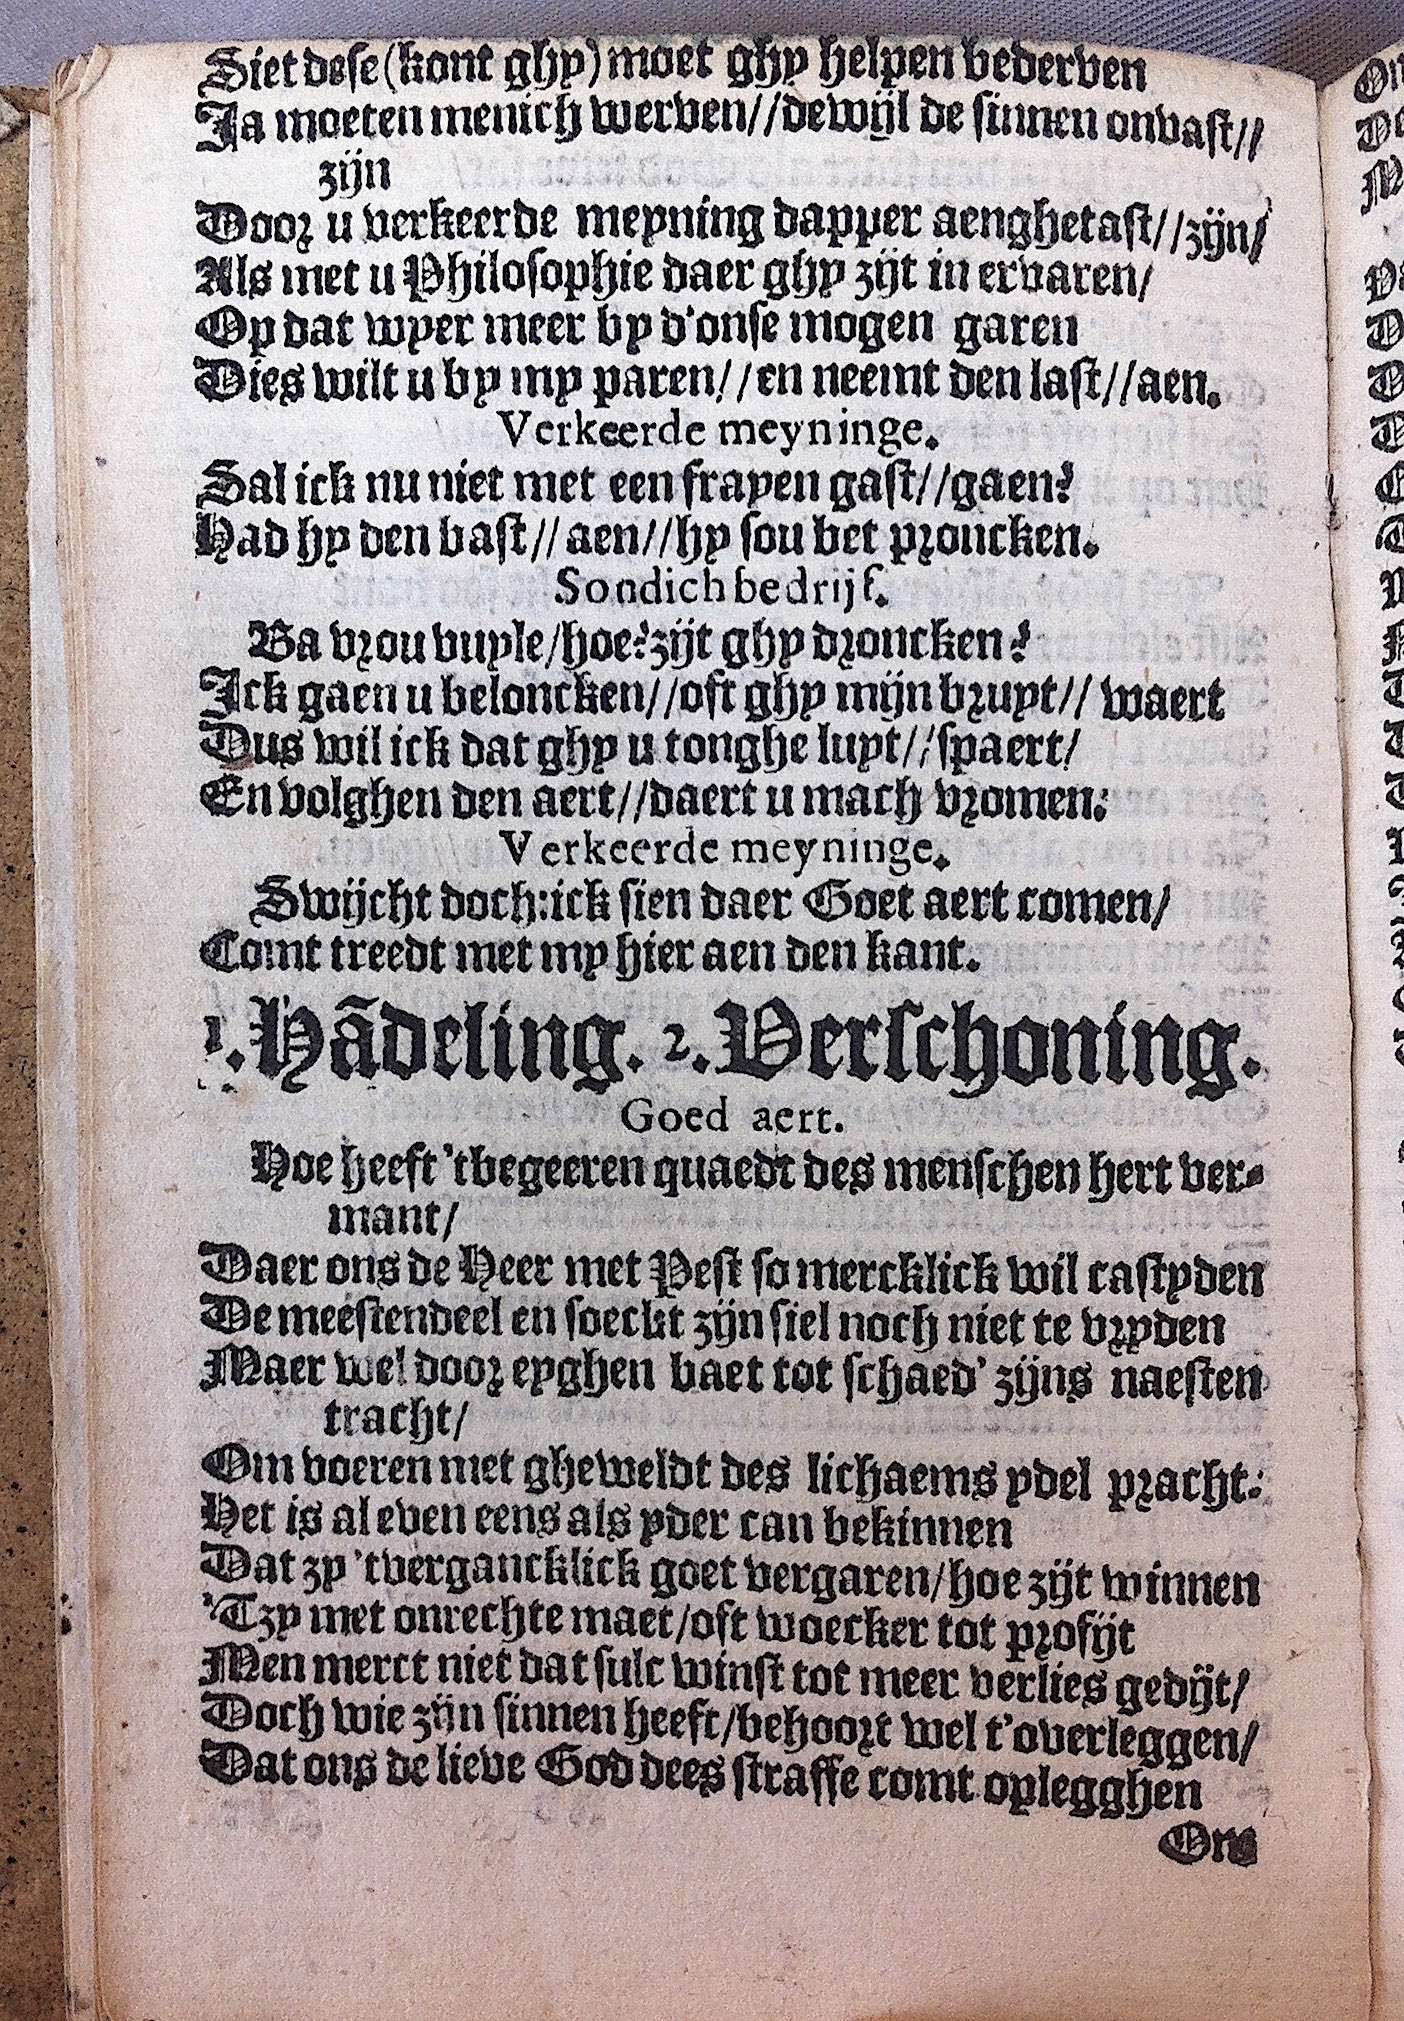 Siet dese (kont ghy) moet ghy helpen bederven
Ja moeten menich werven//dewijl de sinnen onvast//
zijn
Door u verkeerde meyning dapper aenghetast//zijn/
Als met u Philosophie daer ghy zijt in ervaren/
Op dat wyer meer by d'onse mogen garen
Dies wilt u by my paren//en neemt den last//aen.
Verkeerde meyninge.
Sal ick nu niet met een frayen gast//gaen?
Had hy den bast//aen//hy sou bet proncken.
Sondich bedrijf.
Ba vrou vuyle/hoe? zijt ghy droncken?
Ick gaen u beloncken//oft ghy mijn bruyt//waert
Dus wil ick dat ghy u tonghe luyt//spaert/
En volghen den aert//daert u mach vromen:
Verkeerde meyninge.
Swijcht doch: ick sien daer Goet aert comen/
Comt treedt met my hier aen den kant.
1. Hãdeling. 2. Verschoning.
Goed aert.
Hoe heeft 'tbegeeren quaedt des menschen hert ver-
mant/
Daer ons de Heer met Pest so mercklick wil castyden
De meestendeel en soeckt zijn siel noch niet te vryden
Maer wel door eyghen baet tot schaed' zijns naesten
tracht/
Om voeren met gheweldt des lichaems ydel pracht:
Het is al even eens als yder can bekinnen
Dat zy 'tvergancklick goet vergaren/hoe zijt winnen
'Tzy met onrechte maet/oft woecker tot profijt
Men merct niet dat sulc winst tot meer verlies gedijt/
Doch wie zijn sinnen heeft/behoort wel t'overleggen/
Dat ons de lieve God dees straffe comt oplegghen
Om